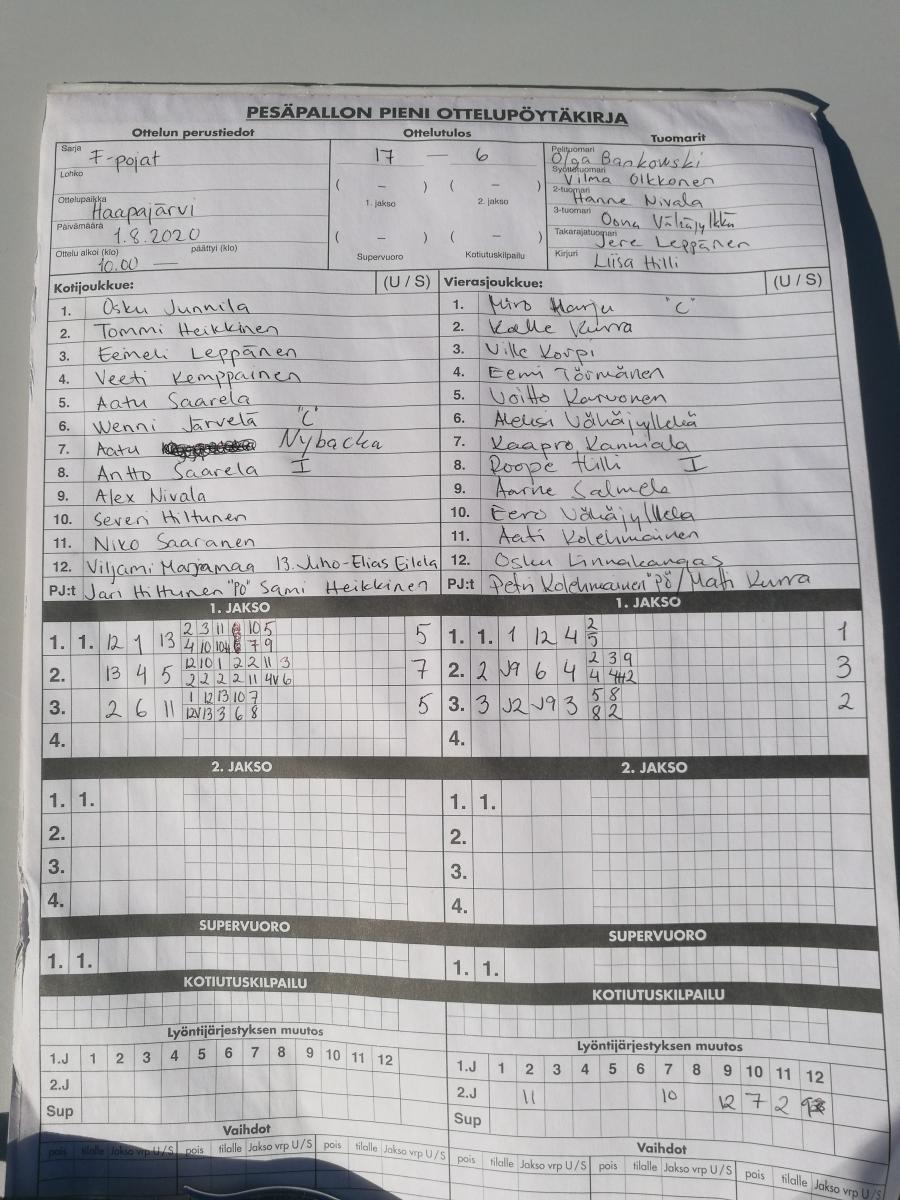 PESÄPALLON PIENI OTTELUPÖYTÄKIRJA
Ottelun perustiedot
Sarja F-pojat
Lohko
Ottelupaikka Haapajärvi
Päivämäärä 1.8.2020
Ottelu alkoi (klo) 10.00 — päättyi (klo)
Ottelutulos
17 — 6
( – ) ( – )
1. jakso 2. jakso
( – ) ( – )
Supervuoro Kotiutuskilpailu
Tuomarit
Pelituomari Olga Bankowski
Syöttötuomari Vilma Olkkonen
2-tuomari Hanne Nivala
3-tuomari Oona Vähäjylkkä
Takarajatuomari Jere Leppänen
Kirjuri Liisa Hilli
Kotijoukkue: (U / S)
1. Osku Junnila
2. Tommi Heikkinen
3. Eemeli Leppänen
4. Veeti Kemppainen
5. Aatu Saarela
6. Wenni Järvelä "C"
7. Aatu Nybacka
8. Antto Saarela I
9. Alex Nivala
10. Severi Hiltunen
11. Niko Saaranen
12. Viljami Marjamaa 13. Juho-Elias Eilola
PJ:t Jari Hiltunen "PÖ" Sami Heikkinen
Vierasjoukkue: (U / S)
1. Miro Harju "C"
2. Kalle Kurra
3. Ville Korpi
4. Eemi Törmänen
5. Voitto Karvonen
6. Aleksi Vähäjylkkä
7. Kaapro Kanniala
8. Roope Hilli I
9. Aarne Salmela
10. Eero Vähäjylkkä
11. Aati Kolehmainen
12. Osku Linnakangas
PJ:t Petri Kolehmainen "PÖ" / Mati Kurra
1. JAKSO
1. 1. 12 1 13 5
2. 13 4 5 7
3. 2 6 11 5
4.
2. JAKSO
1. 1.
2.
3.
4.
SUPERVUORO
1. 1.
KOTIUTUSKILPAILU
Lyöntijärjestyksen muutos
1.J 1 2 3 4 5 6 7 8 9 10 11 12
2.J
Sup
Vaihdot
pois tilalle Jakso vrp U / S pois tilalle Jakso vrp U / S pois tilalle Jakso vrp U / S
1. JAKSO
1. 1. 1 12 4 2 1
5
2. 2 V9 6 4 2 3 9 3
3. 3 V2 V9 3 5 8 2
8 2
4.
2. JAKSO
1. 1.
2.
3.
4.
SUPERVUORO
1. 1.
KOTIUTUSKILPAILU
Lyöntijärjestyksen muutos
1.J 1 2 3 4 5 6 7 8 9 10 11 12
2.J 11 10 12 7 2
Sup
Vaihdot
pois tilalle Jakso vrp U / S pois tilalle Jakso vrp U / S pois tilalle Jakso vrp U / S